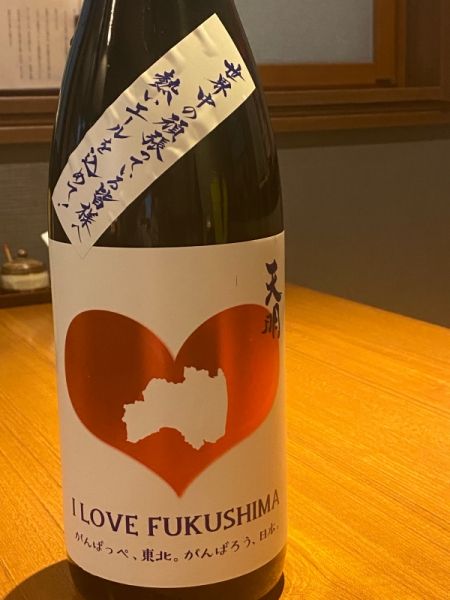 世界中の頑張っている皆様へ
熱いエールを込めて!
天明
I LOVE FUKUSHIMA
がんばっぺ、東北。がんばろう、日本。